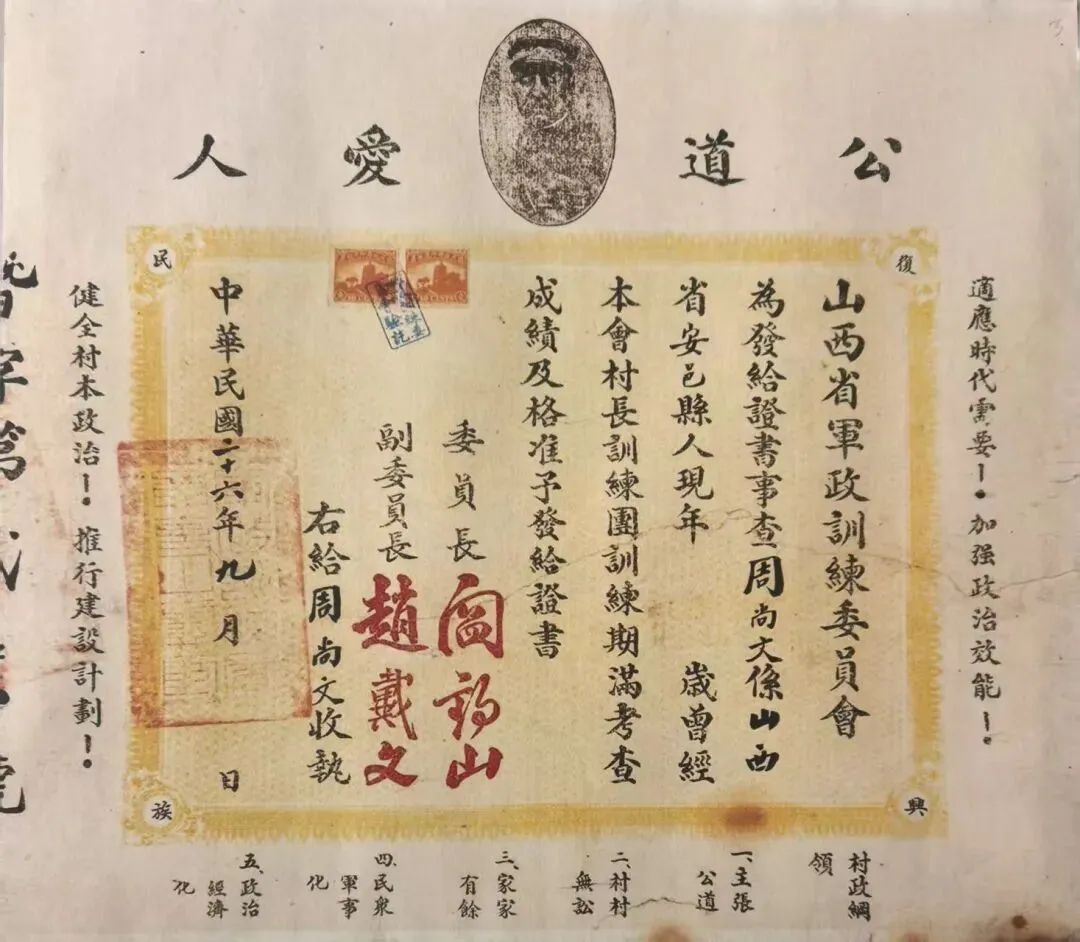 公道愛人
適應時代需要！加强政治效能！
復興民族
山西省軍政訓練委員會
為發給證書事查周尚文係山西
省安邑縣人現年 歲曾經
本會村長訓練團訓練期滿考查
成績及格准予發給證書
委員長 閻錫山
副委員長 趙戴文
右給周尚文收執
中華民國二十六年九月 日
健全村本政治！推行建設計劃！
村政綱領
一、主張公道
二、村村無訟
三、家家有餘
四、民衆軍事化
五、政治經濟化
3